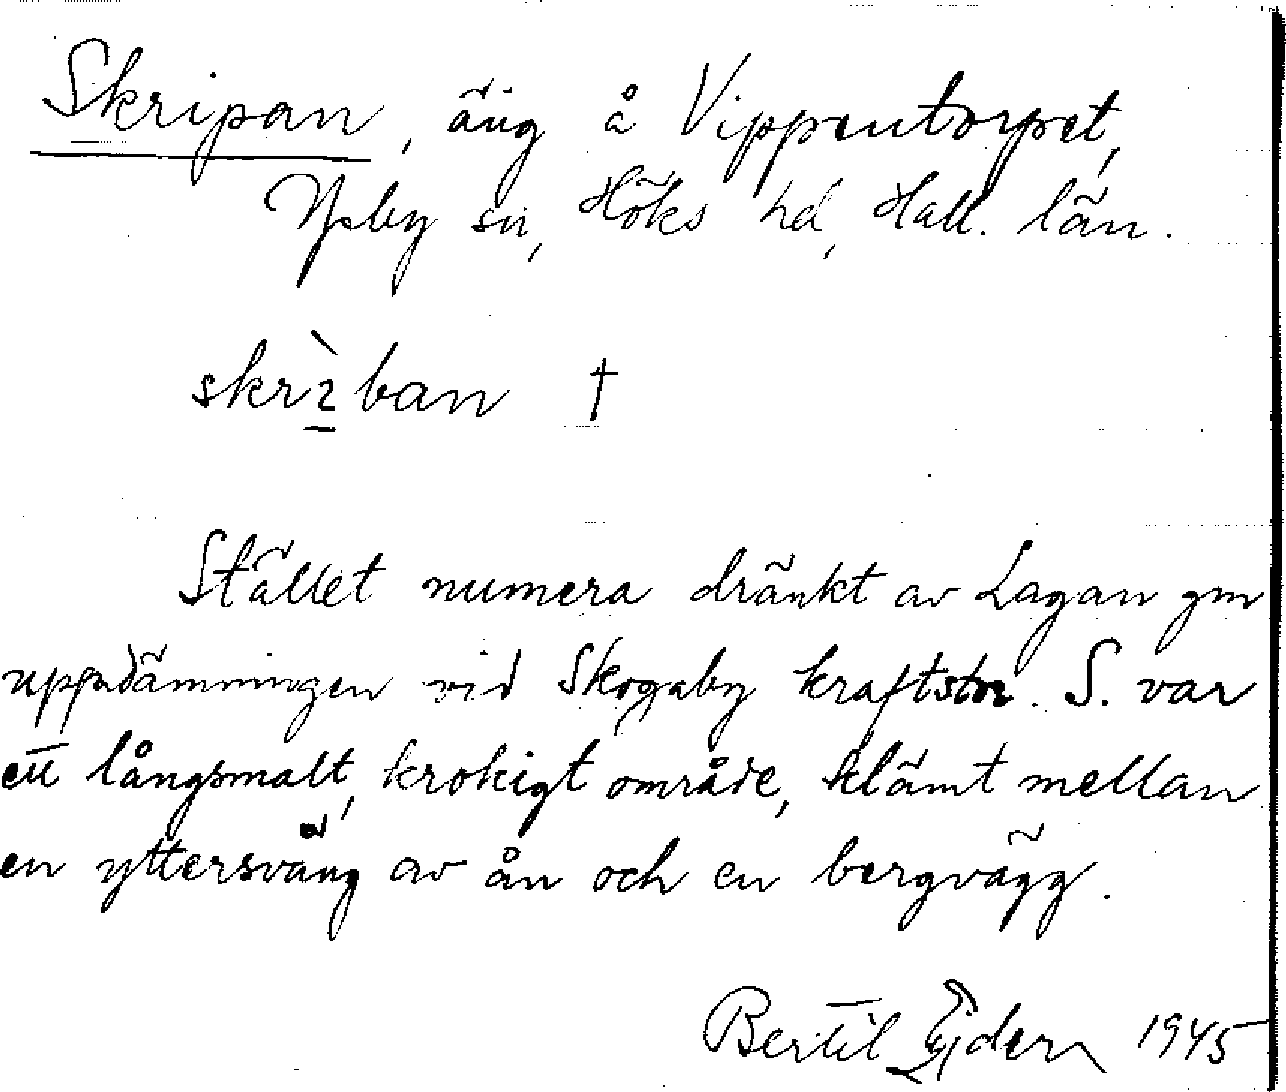 Skripan, äng å Vippentorpet,
Ysby sn, Höks hd, Hall. län.
skrì̱ban †
Stället numera dränkt av Lagan gm
uppdämningen vid Skogaby kraftstn. S. var
ett långsmalt, krokigt område, klämt mellan
en yttersväng av ån och en bergvägg.
Bertil Ejder 1945